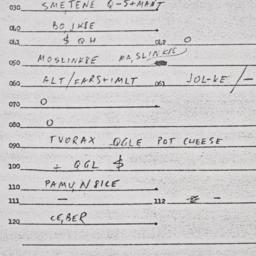 030 SMETENE Q-S+MAHT
040 BOJKEE
041 $ QH 042 O
050 MOSLINKBE MASLINKEE
060 ALT/EARS+IMLT 061 JOL-KE/-
070 O
080 O
090 TVORAX QGLE POT CHEESE
100 + QGL $
110 PAMU,N8ICE
111 - 112 -
120 CE,BER